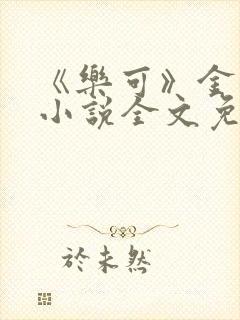 《樂可》金
小說全文免
於未然